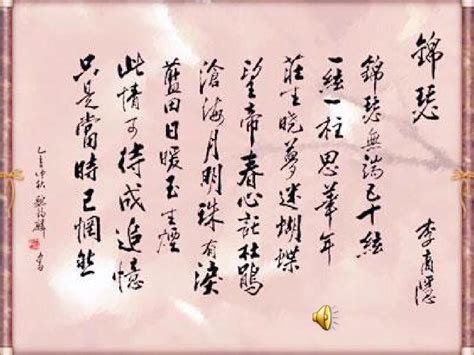 錦瑟
李商隱
錦瑟無端五十絃
一絃一柱思華年
莊生曉夢迷蝴蝶
望帝春心託杜鵑
滄海月明珠有淚
藍田日暖玉生煙
此情可待成追憶
只是當時已惘然
仲秋 書